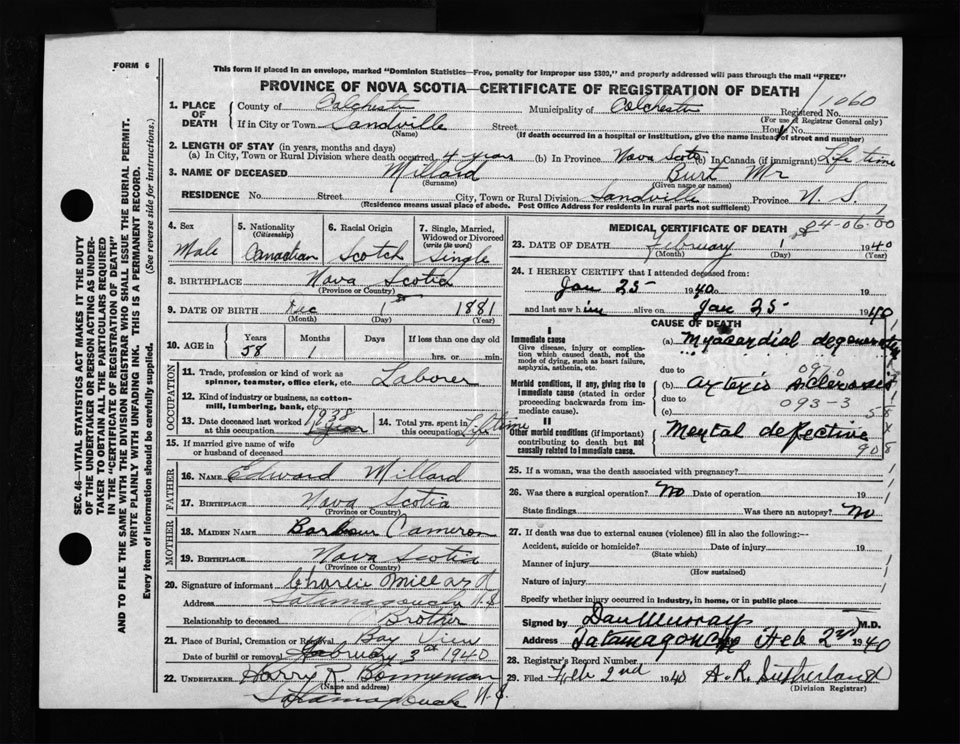 FORM 6
This form if placed in an envelope, marked "Dominion Statistics—Free, penalty for improper use $300," and properly addressed will pass through the mail "FREE"
PROVINCE OF NOVA SCOTIA—CERTIFICATE OF REGISTRATION OF DEATH
1. PLACE OF DEATH
County of Colchester Municipality of Colchester Registered No. 1060
(For use of Registrar General only)
If in City or Town Sandville Street House No.
(Name) (If death occurred in a hospital or institution, give the name instead of street and number)
2. LENGTH OF STAY (in years, months and days)
(a) In City, Town or Rural Division where death occurred 4 years (b) In Province Nova Scotia (c) In Canada (if immigrant) Life time
3. NAME OF DECEASED Millard Burt Mr
(Surname) (Given name or names)
RESIDENCE No. Street City, Town or Rural Division Sandville Province N. S.
(Residence means usual place of abode. Post Office Address for residents in rural parts not sufficient)
4. Sex
Male
5. Nationality
(Citizenship)
Canadian
6. Racial Origin
Scotch
7. Single, Married, Widowed or Divorced
(write the word)
Single
8. BIRTHPLACE Nova Scotia
(Province or Country)
9. DATE OF BIRTH Dec 1 1881
(Month) (Day) (Year)
10. AGE in Years Months Days If less than one day
58 1 hrs. or min.
OCCUPATION
11. Trade, profession or kind of work as spinner, teamster, office clerk, etc. Laborer
12. Kind of industry or business, as cotton-mill, lumbering, bank, etc.
13. Date deceased last worked at this occupation 1938
14. Total yrs. spent in this occupation Lifetime
15. If married give name of wife or husband of deceased
FATHER
16. Name Edward Millard
17. Birthplace Nova Scotia
(Province or Country)
MOTHER
18. Maiden Name Cameron
19. Birthplace Nova Scotia
(Province or Country)
20. Signature of informant Charlie Millard
Address Tatamagouche N.S
Relationship to deceased Brother
21. Place of Burial, Cremation or Removal Bay View
Date of burial or removal February 3rd 1940
22. Undertaker Harry R. Bonnyman
(Name and address)
Tatamagouche N.S.
MEDICAL CERTIFICATE OF DEATH
84-06.00
23. DATE OF DEATH February 1 1940
(Month) (Day) (Year)
24. I HEREBY CERTIFY that I attended deceased from:
Jan 25 1940 to 19
and last saw him alive on Jan 25 1940
CAUSE OF DEATH
I
Immediate cause
Give disease, injury or complication which caused death, not the mode of dying, such as heart failure, asphyxia, asthenia, etc.
(a) Myocardial degeneration
due to 0970
Morbid conditions, if any, giving rise to immediate cause (stated in order proceeding backwards from immediate cause).
(b) Arterio sclerosis
due to 093-3
(c)
II
Other morbid conditions (if important) contributing to death but not causally related to immediate cause.
Mental defective
90
25. If a woman, was the death associated with pregnancy?
26. Was there a surgical operation? No Date of operation 19
State findings Was there an autopsy? No
27. If death was due to external causes (violence) fill in also the following:—
Accident, suicide or homicide? Date of injury 19
(State which)
Manner of injury
(How sustained)
Nature of injury
Specify whether injury occurred in industry, in home, or in public place
Signed by Dan Murray M.D.
Address Tatamagouche Feb 2nd 1940
28. Registrar's Record Number
29. Filed Feb 2nd 1940 A. R. Sutherland
(Division Registrar)
SEC. 46—VITAL STATISTICS ACT MAKES IT THE DUTY
OF THE UNDERTAKER OR PERSON ACTING AS UNDER-
TAKER TO OBTAIN ALL THE PARTICULARS REQUIRED
IN THE "CERTIFICATE OF REGISTRATION OF DEATH"
AND TO FILE THE SAME WITH THE DIVISION REGISTRAR WHO SHALL ISSUE THE BURIAL PERMIT.
WRITE PLAINLY WITH UNFADING INK. THIS IS A PERMANENT RECORD.
Every item of information should be carefully supplied. (See reverse side for instructions.)